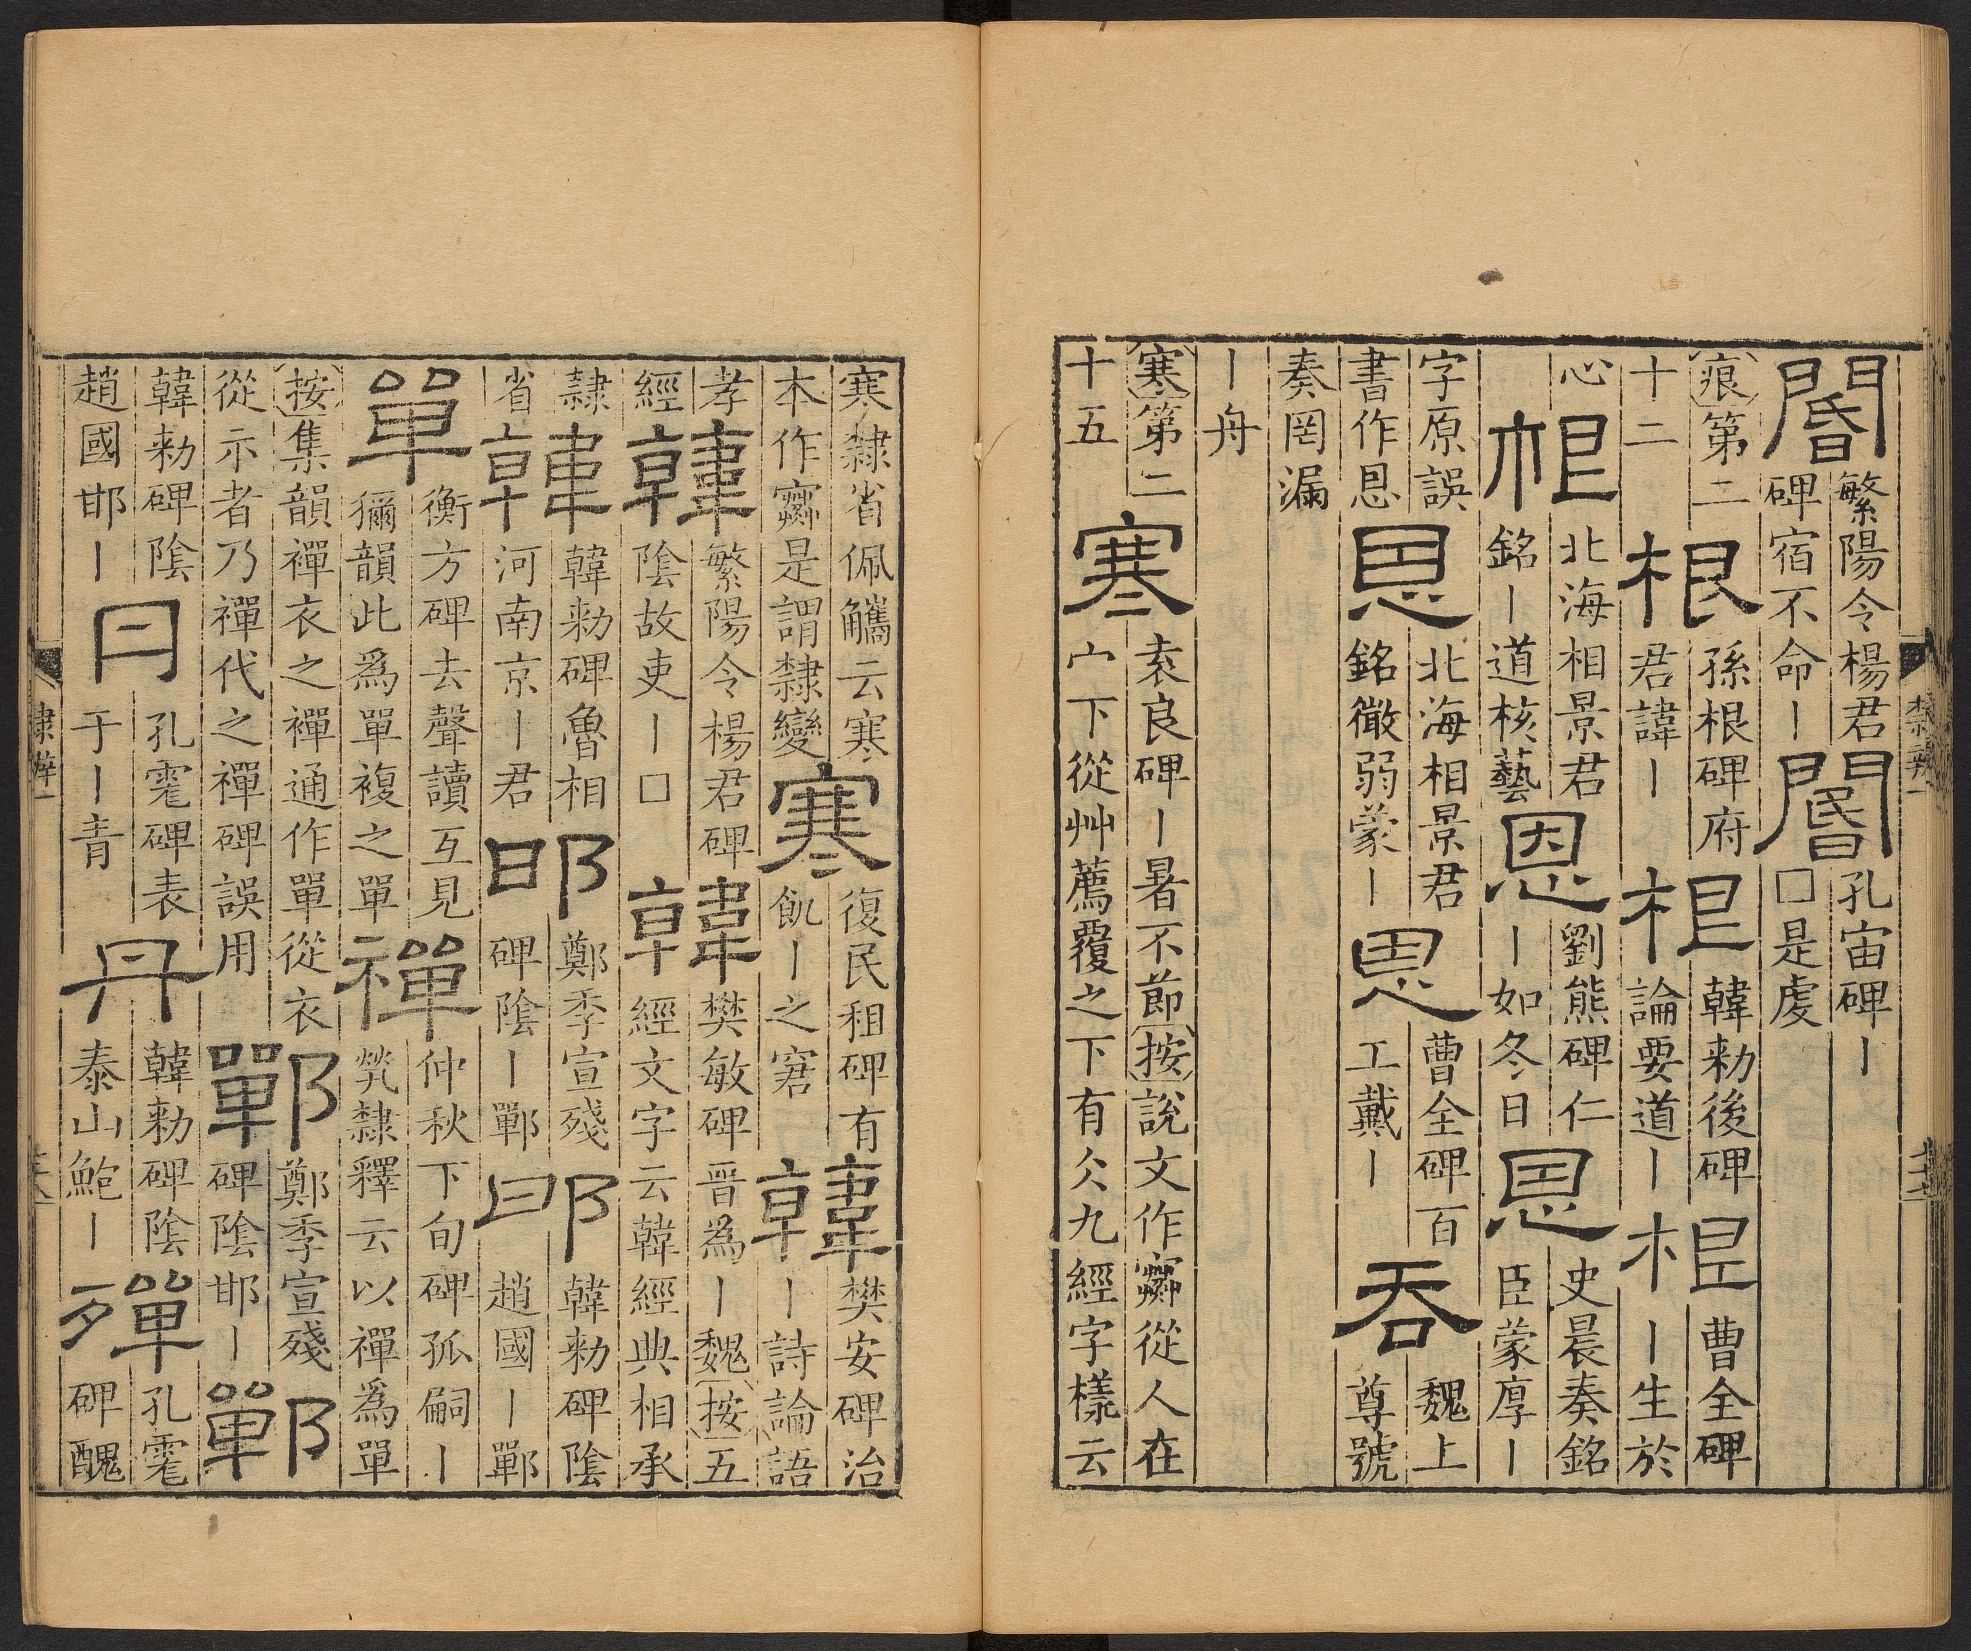 閽
繁陽令楊君
碑宿不命丨
閽
孔宙碑丨
□是虔
痕第二
十二
根
孫根碑府
君諱丨
根
韓勑後碑
論要道丨
根
曹全碑
丨生於
心
根
北海相景君
銘丨道核藝
恩
劉熊碑仁
丨如冬日
恩
史晨奏銘
臣蒙厚丨
字原誤
書作恩
恩
北海相景君
銘徽弱蒙丨
恩
曹全碑百
工戴丨
吞
魏上
尊號
奏罔漏
丨舟
寒第二
十五
寒
袁良碑丨暑不節按說文作𡫾從人在
宀下從艸薦覆之下有仌九經字樣云
隸辨一
寒隸省佩觿云寒
本作𡫾是謂隸變
寒
復民租碑有
飢丨之窘
韓
樊安碑治
丨詩論語
孝
經
韓
繁陽令楊君碑
陰故吏丨□
韓
樊敏碑晉爲丨魏按五
經文字云韓經典相承
隸
省
韓
韓勑碑魯相
河南京丨君
邯
鄭季宣殘
碑陰丨鄲
邯
韓勑碑陰
趙國丨鄲
單
衡方碑去聲讀互見
獮韻此爲單複之單
禪
仲秋下旬碑孤嗣丨
煢隸釋云以禪爲單
按集韻襌衣之襌通作單從衣
從示者乃禪代之禪碑誤用
鄲
鄭季宣殘
碑陰邯丨
鄲
韓勑碑陰
趙國邯丨
丹
孔碑表
于丨青
丹
韓勑碑陰
泰山鮑丨
殫
孔
碑醜
隸辨一